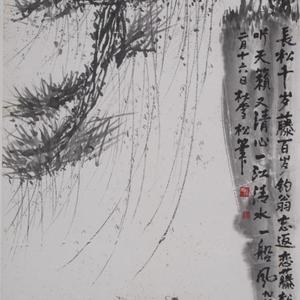 長松千岁藤百岁钓翁忘返恋藤松
听天籁又清心一江清水一船风
二月十六日杜雪松笔